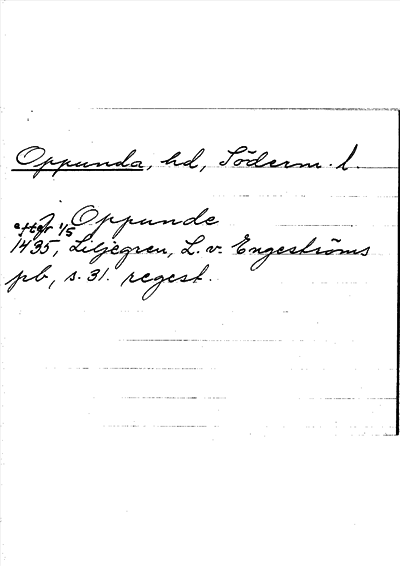 Oppunda, hd, Söderm. l.
J Oppunde
efter 1/5
1435, Liljegren, L. v. Engeströms
pb, s. 31. regest.